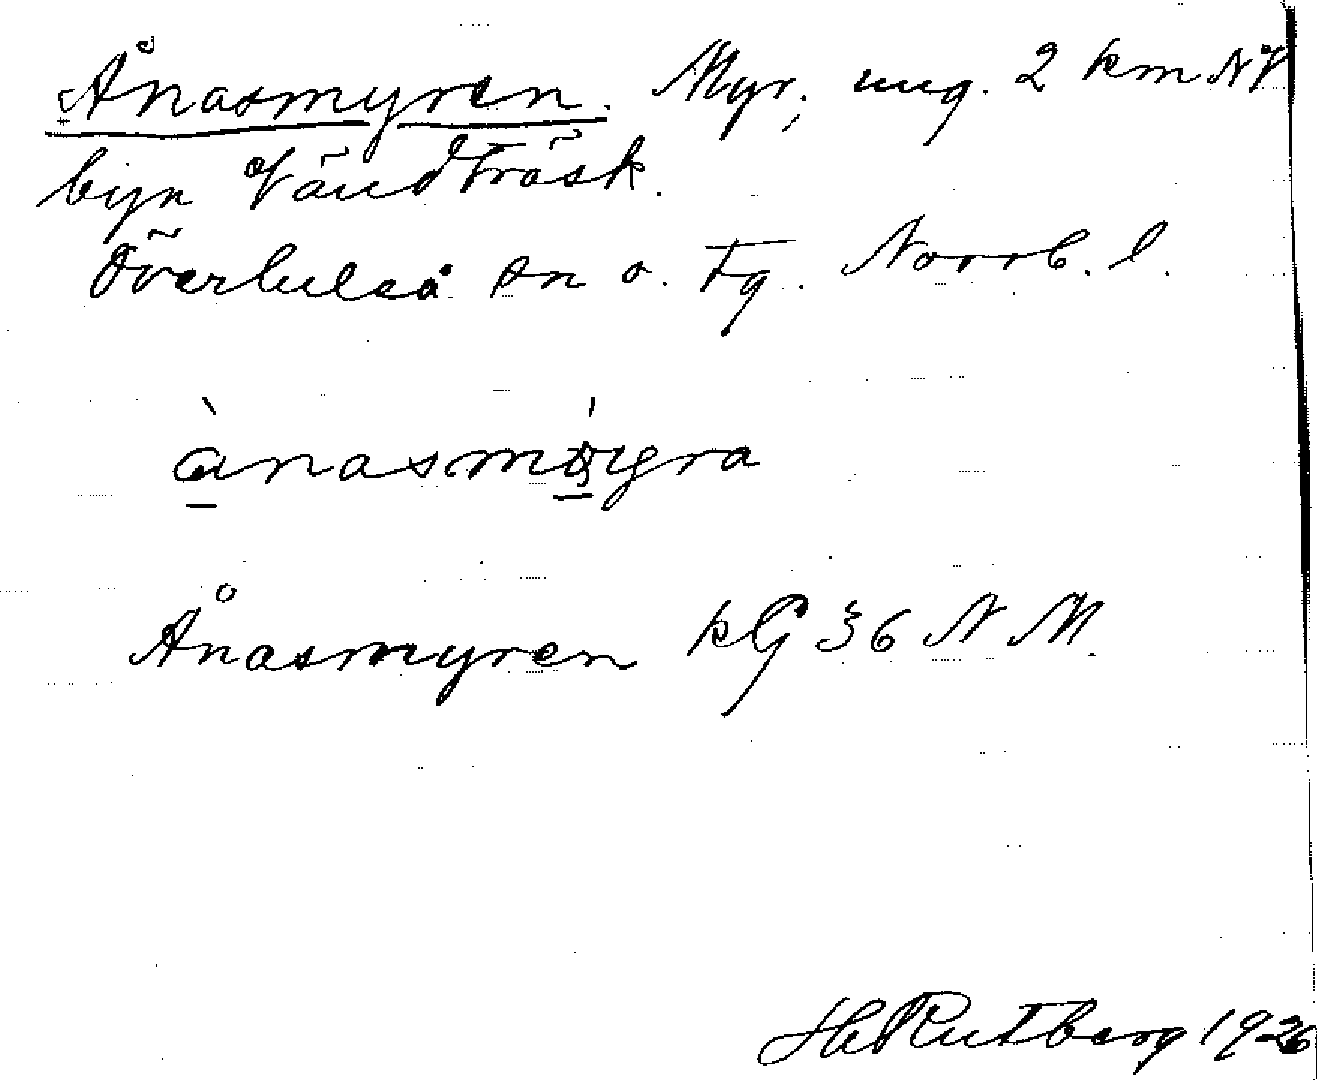 Ånasmyren. Myr, ung. 2 km NV
byn Vändträsk.
Överluleå sn o. tg. Norrb. l.
Ånasmyren kG 36 N M.
Hd Rutberg 1926